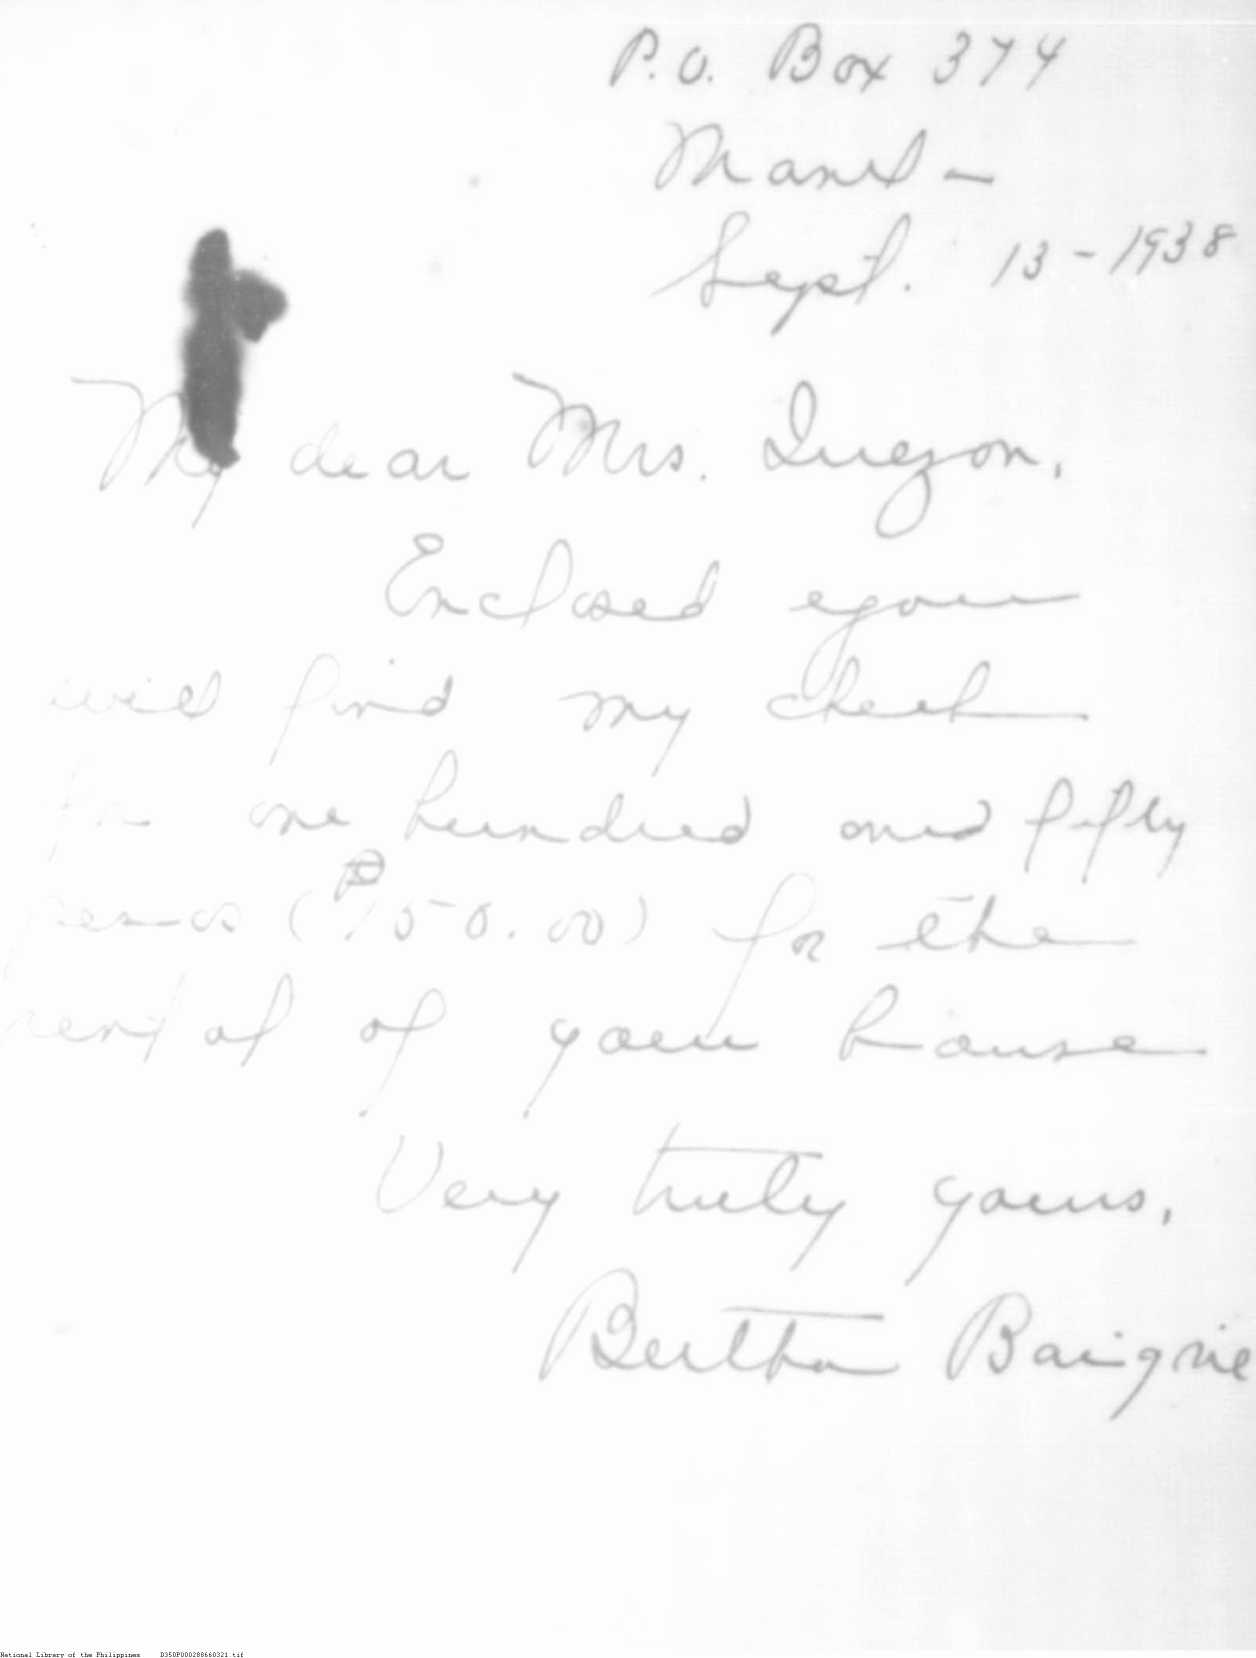 P.O. Box 374
Manila
Sept. 13-1938
My dear Mrs. Quezon,
Enclosed you
will find my check
for one hundred and fifty
pesos (₱150.00) for the
rental of your house
Very truly yours,
Bertha Baignie
National Library of the Philippines D350P000288660321.tif